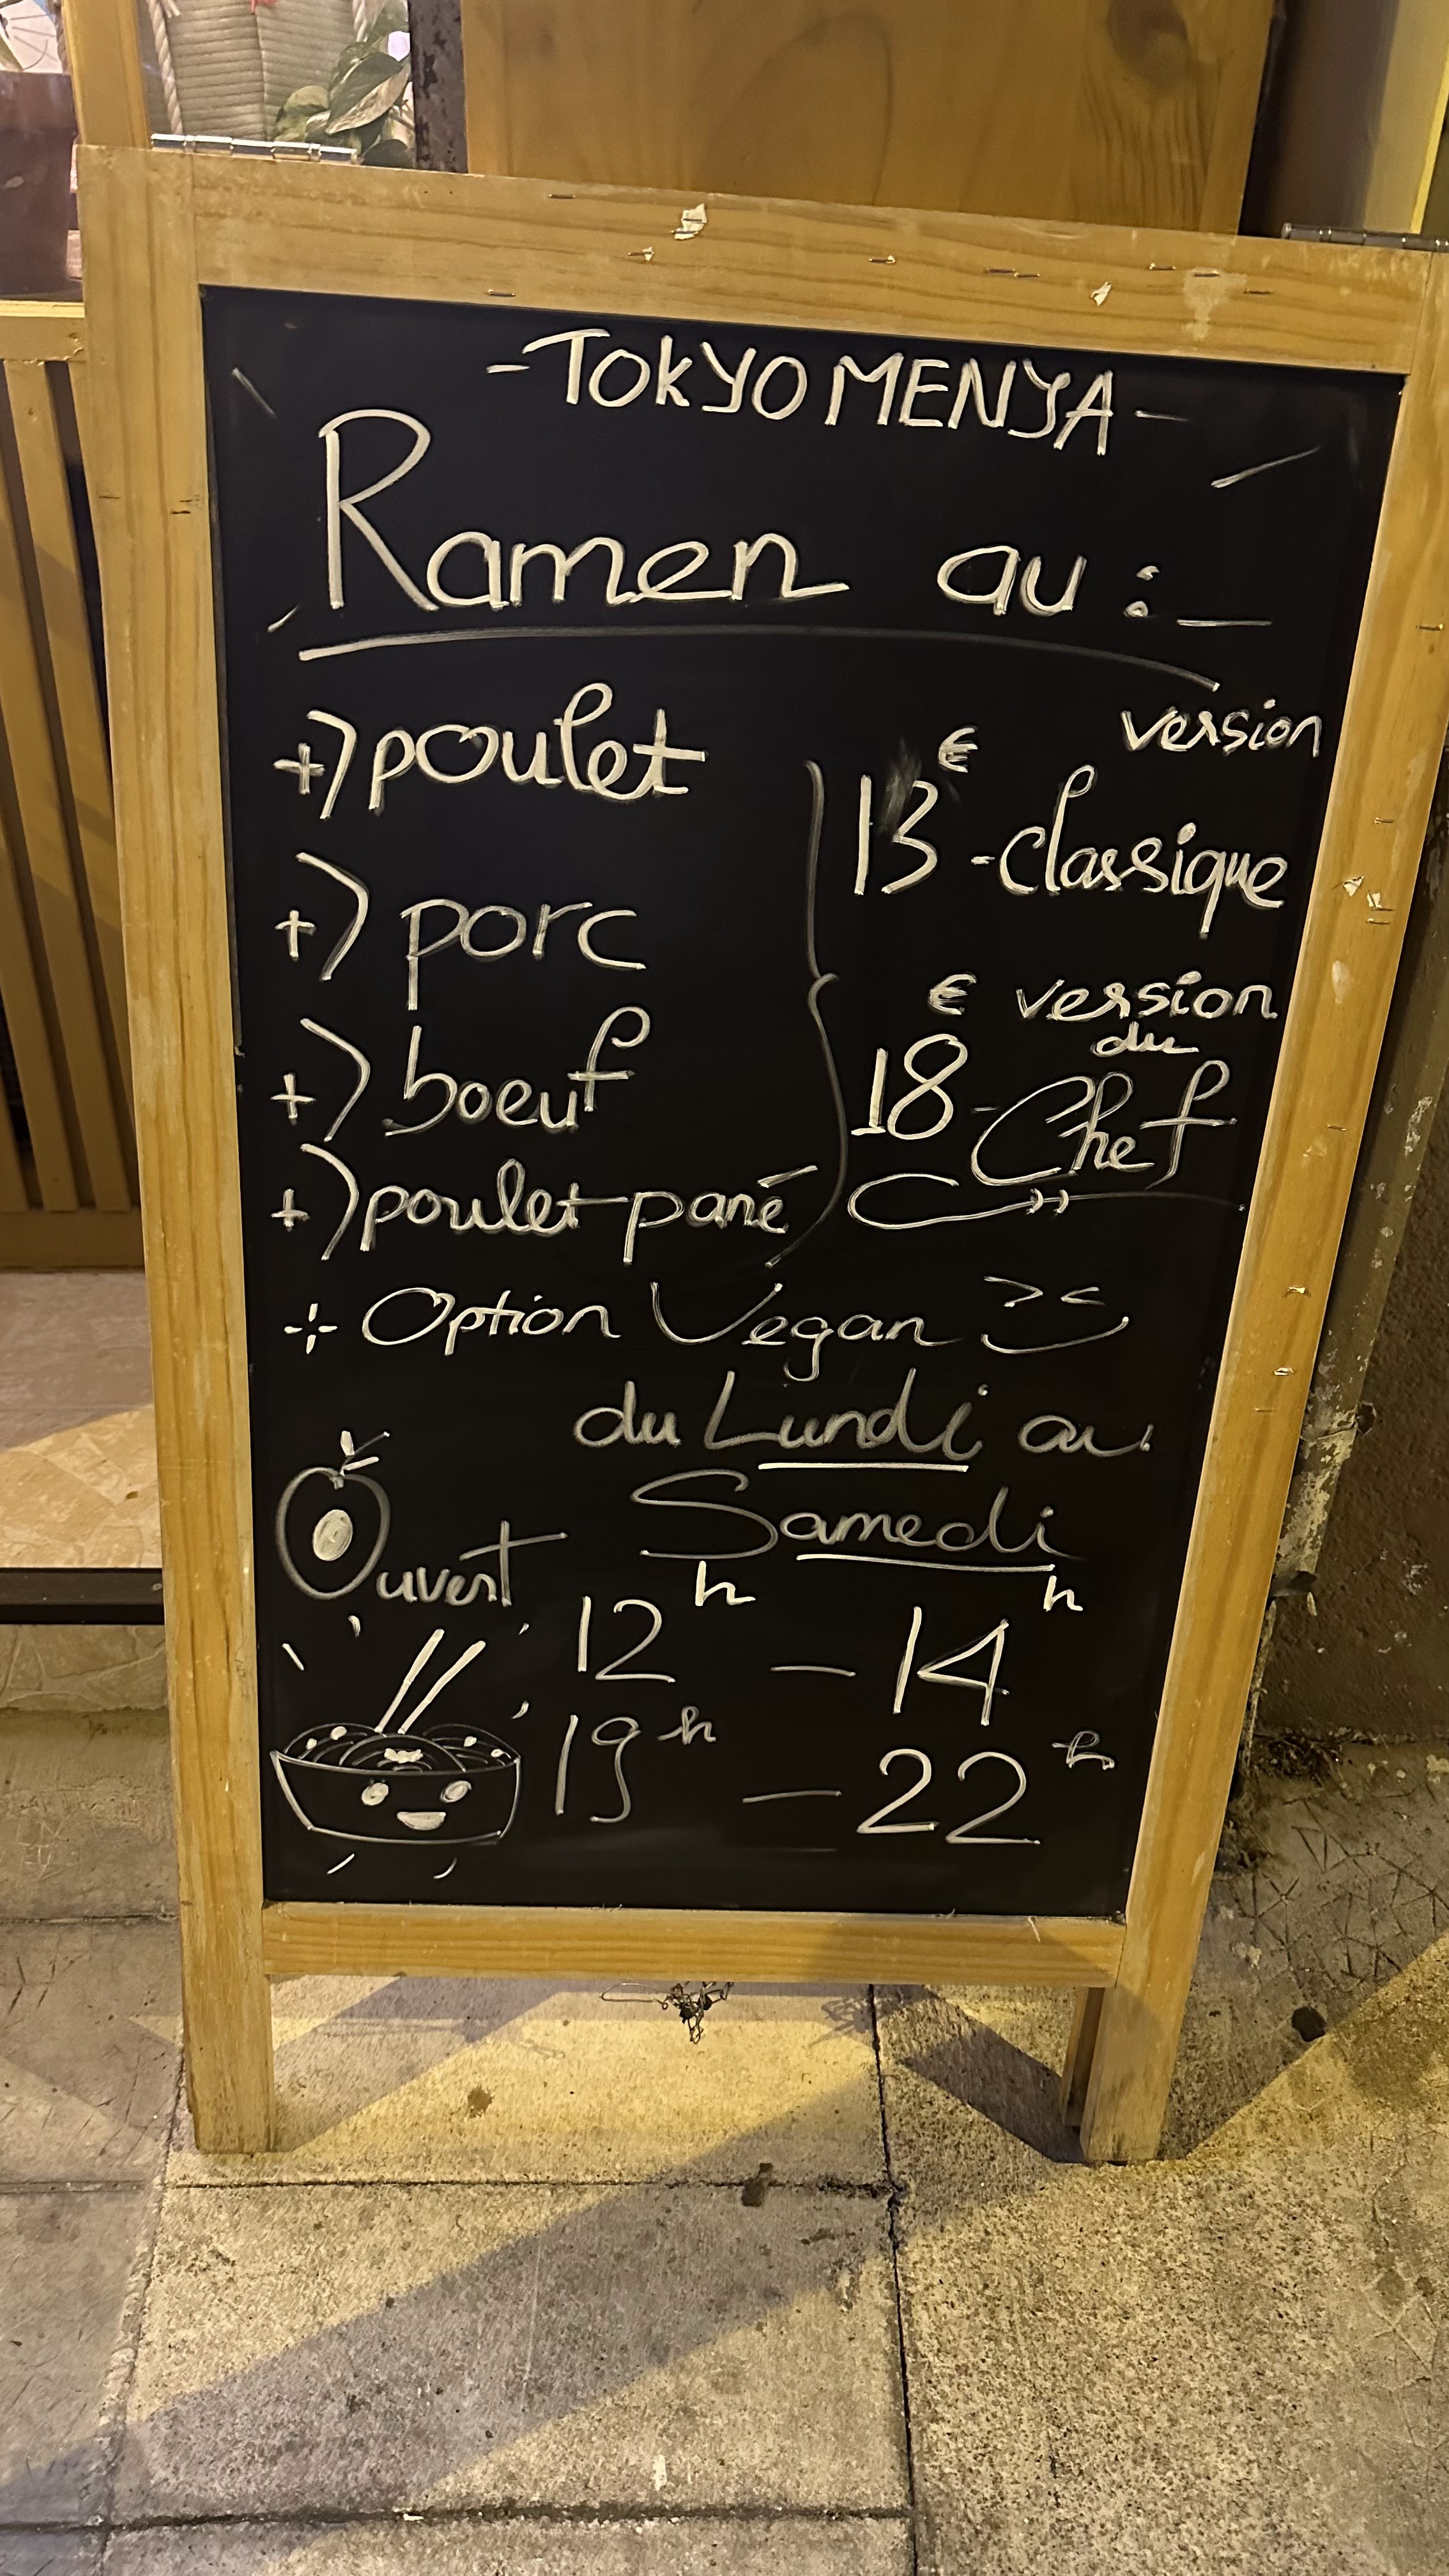 -TOKYO MENYA-
Ramen au :
+) poulet
+) porc
+) boeuf
+) poulet pané
version
13€ - classique
€ version
du
18 - Chef
+ Option Vegan
du Lundi au
Samedi
Ouvert
12h - 14h
19h - 22h